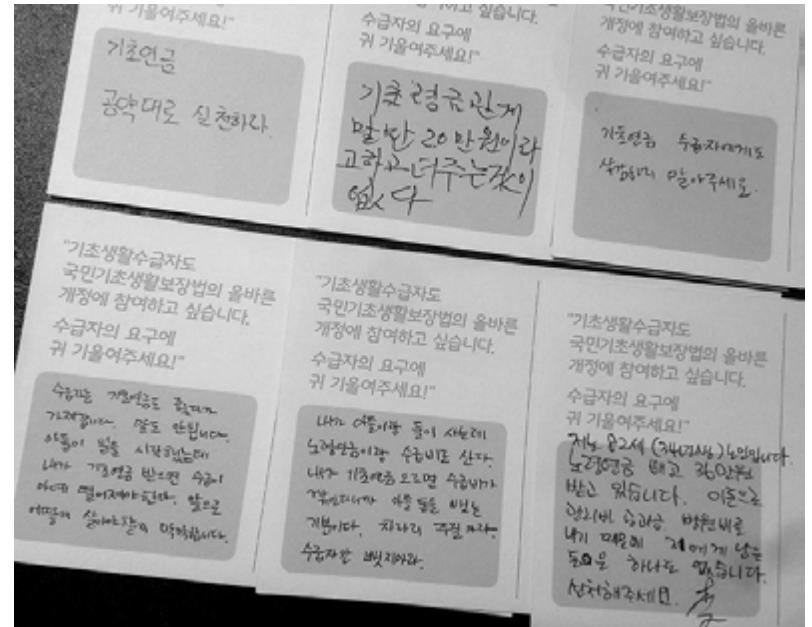 수급자의 요구에
귀 기울여주세요!"
기초연금
공약대로 실천하라.
싶습니다.
수급자의 요구에
귀 기울여주세요!"
기초령금관게
말만 20만원이라
고하고 더주는것이
없다
국민기초생활보장법의 올바른
개정에 참여하고 싶습니다.
수급자의 요구에
귀 기울여주세요!"
기초연금 수급자에게도
삭감하지 말아주세요.
"기초생활수급자도
국민기초생활보장법의 올바른
개정에 참여하고 싶습니다.
수급자의 요구에
귀 기울여주세요!"
수급자는 기초연금도
말도 안됩니다.
아들이 일을 시작했는데
내가 기초연금 받으면 수급이
아예 떨어져야한다. 앞으로
어떻게 살아야할지 막막합니다.
"기초생활수급자도
국민기초생활보장법의 올바른
개정에 참여하고 싶습니다.
수급자의 요구에
귀 기울여주세요!"
내가 아들이랑 둘이 사는데
노령연금이랑 수급비로 산다.
내가 기초연금 오르면 수급비가
아들 돈을 뺏는
기분이다. 차라리 주질 마라.
수급자만
"기초생활수급자도
국민기초생활보장법의 올바른
개정에 참여하고 싶습니다.
수급자의 요구에
귀 기울여주세요!"
저는 82세 (34년생) 노인입니다.
노령연금 빼고 36만원
받고 있습니다. 이돈으로
관리비 공과금 병원비로
내기 때문에 저에게 남는
돈은 하나도 없습니다.
선처해주세요.